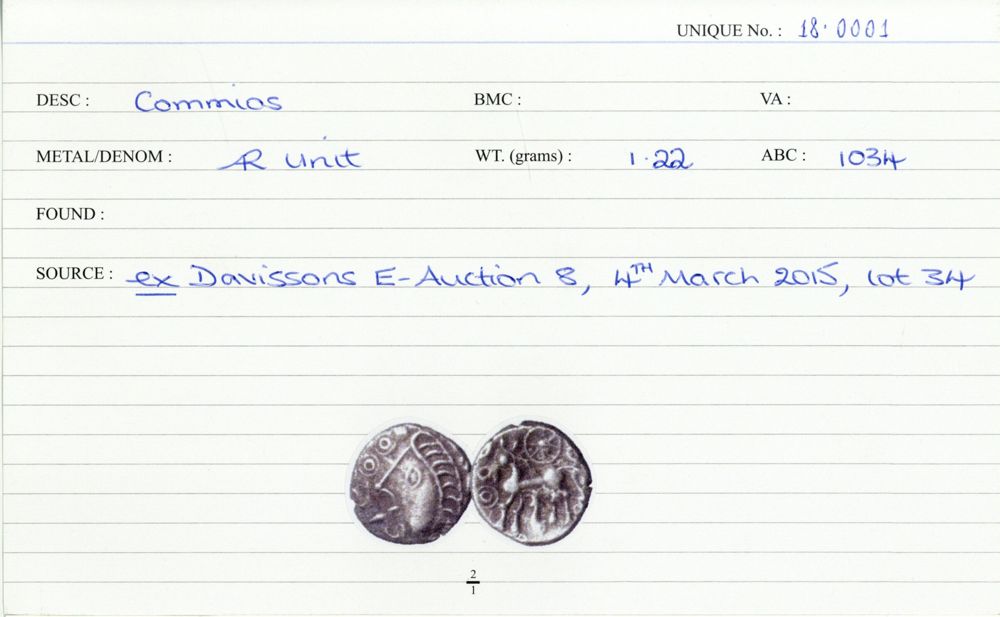 UNIQUE No. : 18·0001
DESC : Commios BMC : VA :
METAL/DENOM : AR Unit WT. (grams) : 1·22 ABC : 1034
FOUND :
SOURCE : ex Davissons E-Auction 8, 4TH March 2015, lot 34
2
1